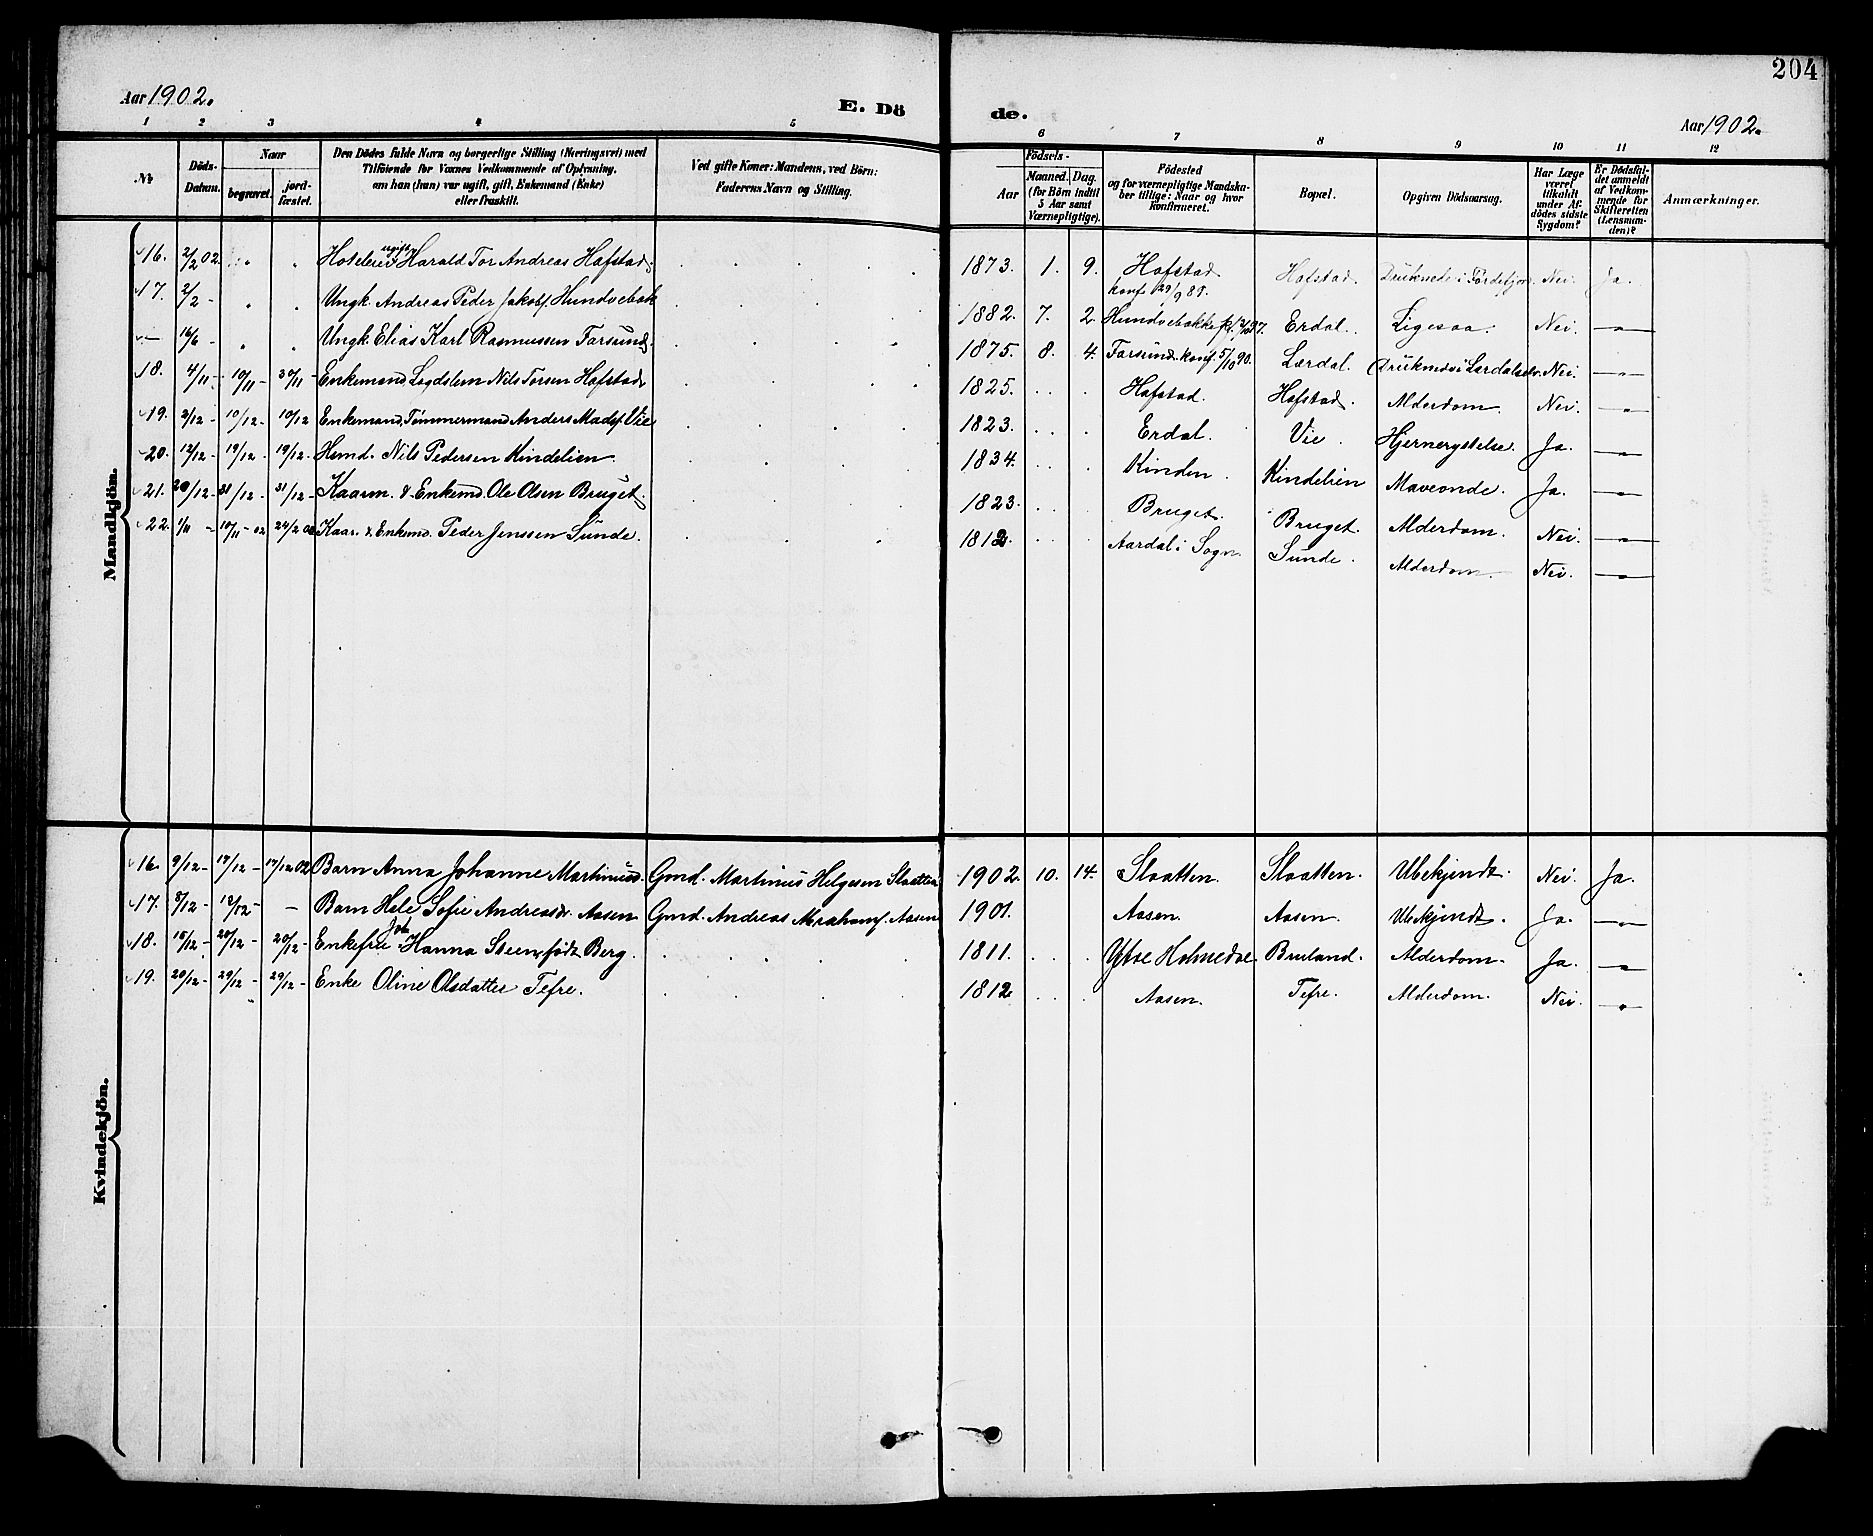 204
Aar 1902.
E. Dö
de.
Aar 1902.
1 2 3 4 5 6 7 8 9 10 11 12
No
Döds-Datum.
Naar
begravet.
jord-fæstet.
Den Dödes fulde Navn og borgerlige Stilling (Næringsvei) med
Tilföiende for Voxnes Vedkommende af Oplysning,
om han (hun) var ugift, gift, Enkemand (Enke)
eller fraskilt.
Ved gifte Koner: Mandens, ved Börn:
Faderens Navn og Stilling.
Födsels-
Aar
Maaned. Dag.
(for Börn indtil
5 Aar samt
Værnepligtige).
Födested
og for værnepligtige Mandska-
ber tillige: Naar og hvor
konfirmeret.
Bopæl.
Opgiven Dödsaarsag.
Har Læge
været
tilkaldt
under Af-
dödes sidste
Sygdom?
Er Dödsfal-
det anmeldt
af Vedkom-
mende for
Skifteretten
(Lensman-
den)?
Anmærkninger.
Mandkjön.
16. 2/2 02. " " Hoteleier ugift Harald Tor Andreas Hafstad. 1873. 1. 9. Hafstad konf. 29/9 88. Hafstad. Druknede i Fördefjor. Nei. Ja.
17. 2/2 - " " Ungk. Andreas Peder Jakobs. Hundvebak 1882. 7. 2. Hundvebakke Erdal. Ligesaa. Nei. — " —
— 16/6 - " " Ungk. Elias Karl Rasmussen Farsund. 1875. 8. 4. Farsund. konf. 5/10 90. Lærdal. Druknede i Lærdalselv. Nei. — " —
18. 4/11 - 10/11 - 30/11 - Enkemand Logdslem Nils Torsen Hafstad 1825. Hafstad. Hafstad. Alderdom. Nei. — " —
19. 2/12 - 10/12 - 10/12 Enkemand, Tømmermand Anders Mads. Vie 1823. Erdal. Vie. Hjernerystelse. Ja. — " —
20. 12/12 - 19/12 - 19/12 - Husmd. Nils Pedersen Kindelien. 1834. Kinden. Kindelien Maveonde. Ja. — " —
21. 20/12 - 31/12 - 31/12 - Kaarm. & Enkemd. Ole Olsen Bruget. 1823. Bruget. Bruget. Alderdom. Nei. — " —
22. 1/11 - 10/11 - 02 24/2 03 Kaar. & Enkemd. Peder Jenssen Sunde. 1812. Aardal i Sogn. Sunde. Alderdom. Nei. — " —
Kvindekjön.
16. 9/12 - 17/12 - 17/12 02 Barn Anna Johanne Martinusd. Gmd. Martinus Helgesen Slaatten 1902. 10. 14. Slaatten. Slaatten. Ubekjendt. Nei. Ja.
17. 8/12 - 12/12 - — Barn Hele Sofie Andreasdr. Aasen Gmd. Andreas Abrahams. Aasen 1901. Aasen. Aasen. Ubekjendt. Ja. — " —
18. 15/12 - 20/12 - 20/12 - Enkefru Joh Hanna Steen, født Berg. 1811. Ytre Holmedal Bruland. Alderdom. Ja. — " —
19. 20/12 - 29/12 - 29/12 - Enke Oline Olsdatter Tefre. 1812 Aasen. Tefre. Alderdom. Nei. — " —